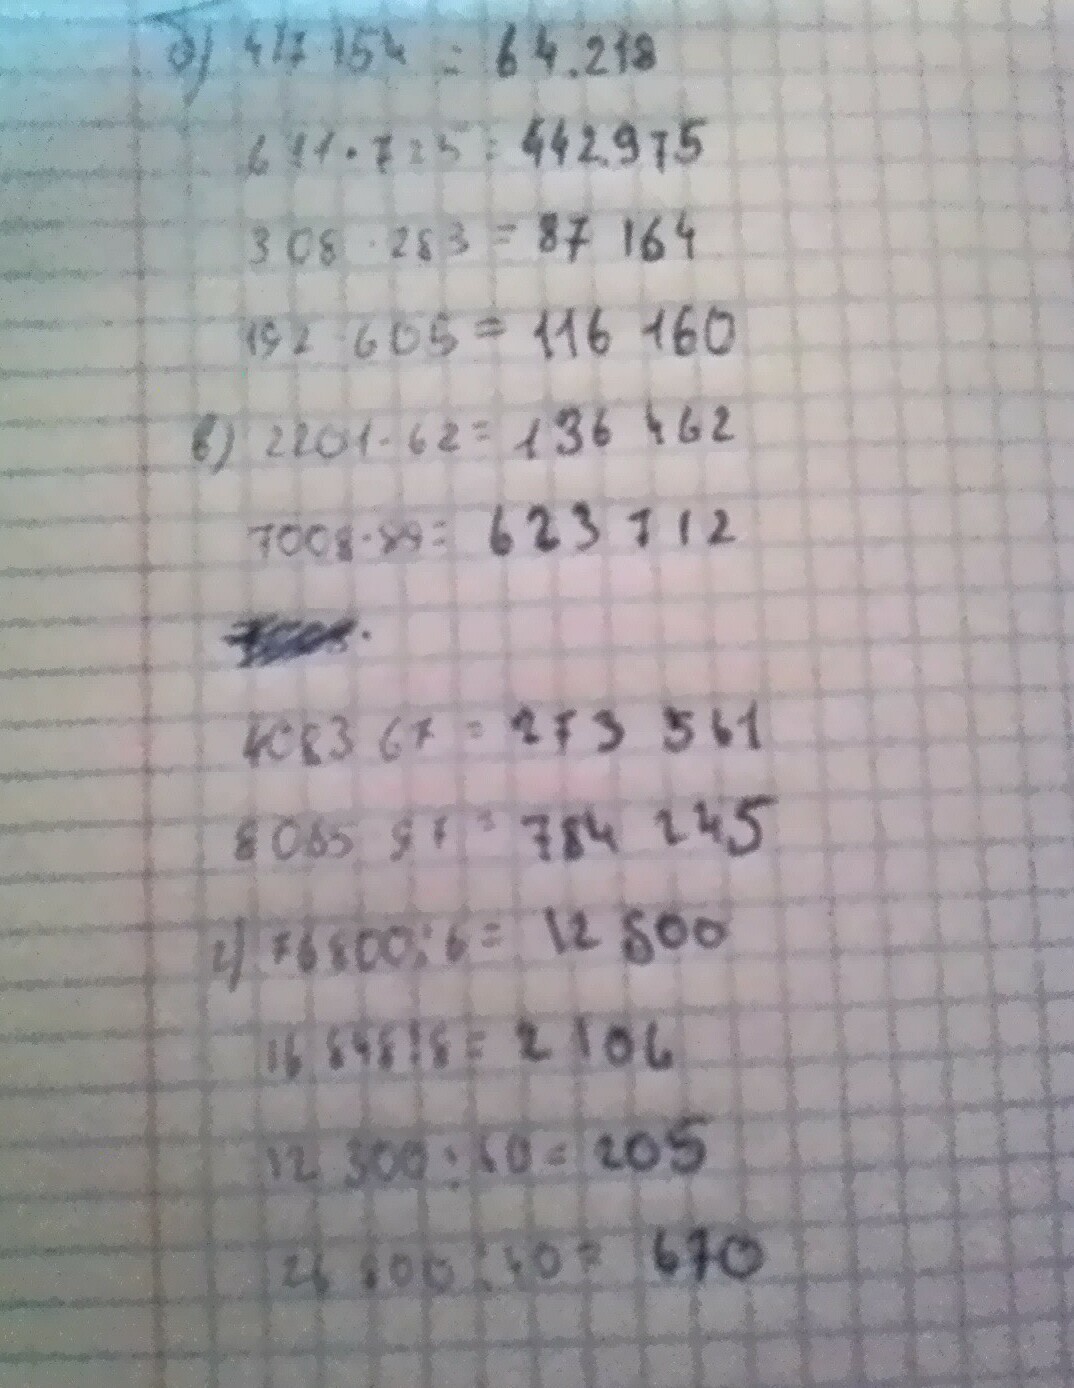 б) 417 154 = 64.218
611·725 = 442975
308 · 283 = 87 164
192 · 605 = 116 160
в) 2201·62 = 136 462
7008·89 = 623 712
4083 67 = 273 561
8085 97 = 784 245
г) 76800:6 = 12 800
16 848:8 = 2 106
12 300:60 = 205
26 800:40 = 670